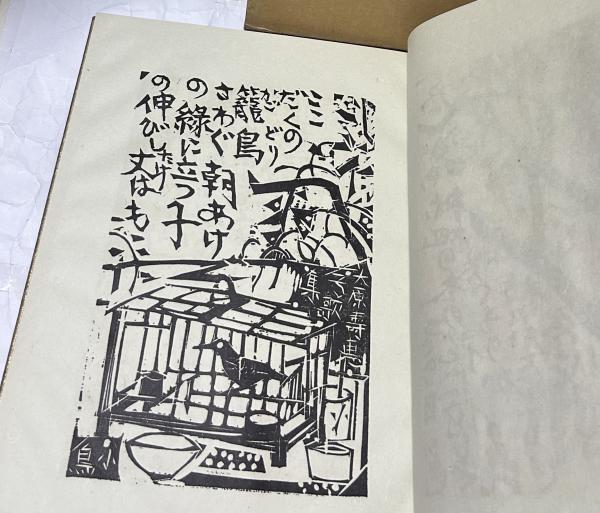 ここ
だくの
籠鳥
かごどり
さわぐ朝あけ
の緣に立つ子
の伸びし丈はも
たけ
大原壽恵
子歌
集
小鳥